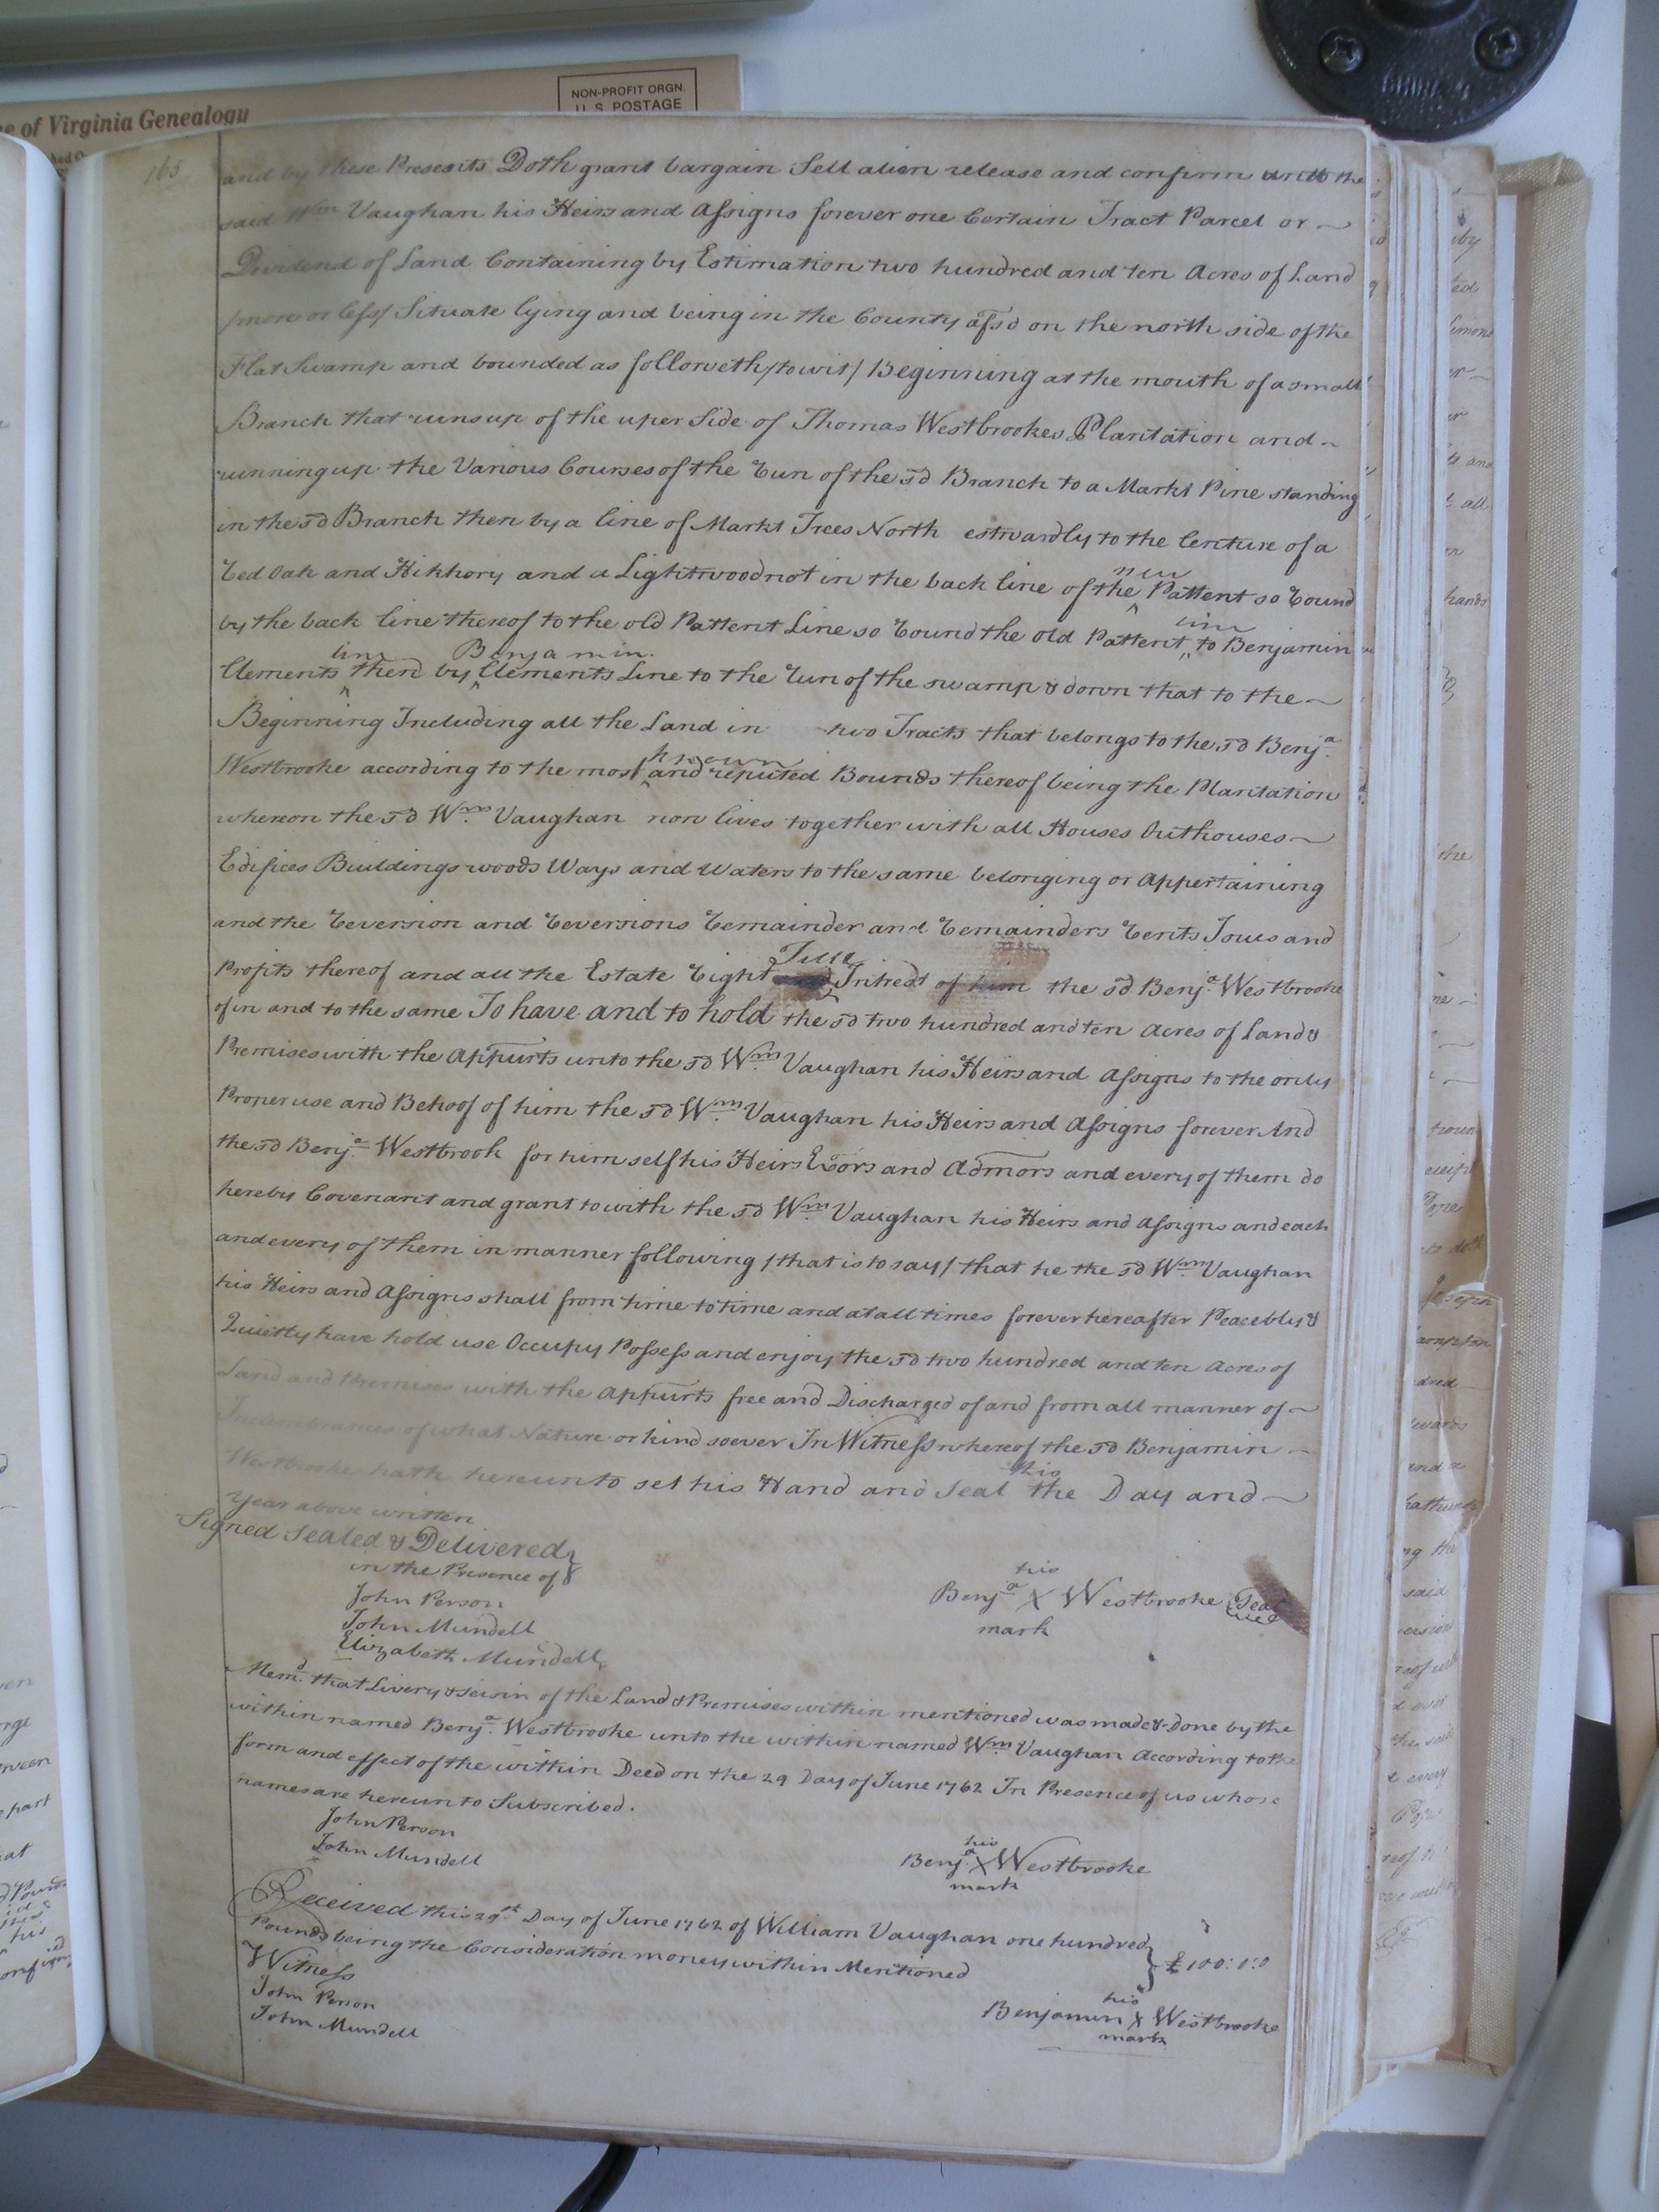 e of Virginia Genealogy
NON-PROFIT ORGN.
U.S. POSTAGE
165
and by these Presents Doth grant bargain Sell alien release and confirm unto the
said Wm Vaughan his Heirs and Assigns forever one Certain Tract Parcel or
Dividend of Land Containing by Estimation two hundred and ten Acres of Land
/more or less/ Situate lying and being in the County afsd on the north side of the
Flat Swamp and bounded as followeth /to wit/ Beginning at the mouth of a small
Branch that runs up of the uper Side of Thomas Westbrookes Plantation and
running up the Various Courses of the Run of the sd Branch to a Markt Pine standing
in the sd Branch then by a line of Markt Trees North estwardly to the Centure of a
Red Oak and Hikkory and a Lightwood not in the back line of the new Pattent so Round
by the back line thereof to the old Pattent Line so Round the old Pattent line to Benjamin
Clements line then by Benjamin Clements Line to the Run of the swamp & down that to the
Beginning Including all the Land in two Tracts that belongs to the sd Benja
Westbrooke according to the most known and reputed Bounds thereof being the Plantation
whereon the sd Wm Vaughan now lives together with all Houses Outhouses
Edifices Buildings woods Ways and Waters to the same belonging or Appertaining
and the Reversion and Reversions Remainder and Remainders Rents Isues and
Profits thereof and all the Estate Right Title Intrest of him the sd Benja Westbrooke
of in and to the same To have and to hold the sd two hundred and ten Acres of Land &
Premises with the Appurts unto the sd Wm Vaughan his Heirs and Assigns to the only
Proper use and Behoof of him the sd Wm Vaughan his Heirs and Assigns forever And
the sd Benja Westbrook for himself his Heirs Exors and Admors and every of them do
hereby Covenant and grant to with the sd Wm Vaughan his Heirs and Assigns and each
and every of them in manner following /that is to say/ that he the sd Wm Vaughan
his Heirs and Assigns shall from time to time and at all times forever hereafter Peacebly &
Quietly have hold use Occupy Possess and enjoy the sd two hundred and ten Acres of
Land and Premises with the Appurts free and Discharged of and from all manner of
Incumbrances of what Nature or kind soever In Witness whereof the sd Benjamin
Westbrooke hath hereunto set his Hand and Seal this the Day and
Year above written
Signed Sealed & Delivered
in the Presence of
John Person
John Mundell
Elizabeth Mundell
his
Benja X Westbrooke Seal
mark
Memd that Livery & Seisin of the Land & Premises within mentioned was made & done by the
within named Benja Westbrooke unto the within named Wm Vaughan According to the
form and effect of the within Deed on the 29 Day of June 1762 In Presence of us whose
names are hereunto Subscribed.
John Person
John Mundell
his
Benja X Westbrooke
mark
Received this 29th Day of June 1762 of William Vaughan one hundred
Pounds being the Consideration money within Mentioned } £100:0:0
Witness
John Person
John Mundell
his
Benjamin X Westbrooke
mark